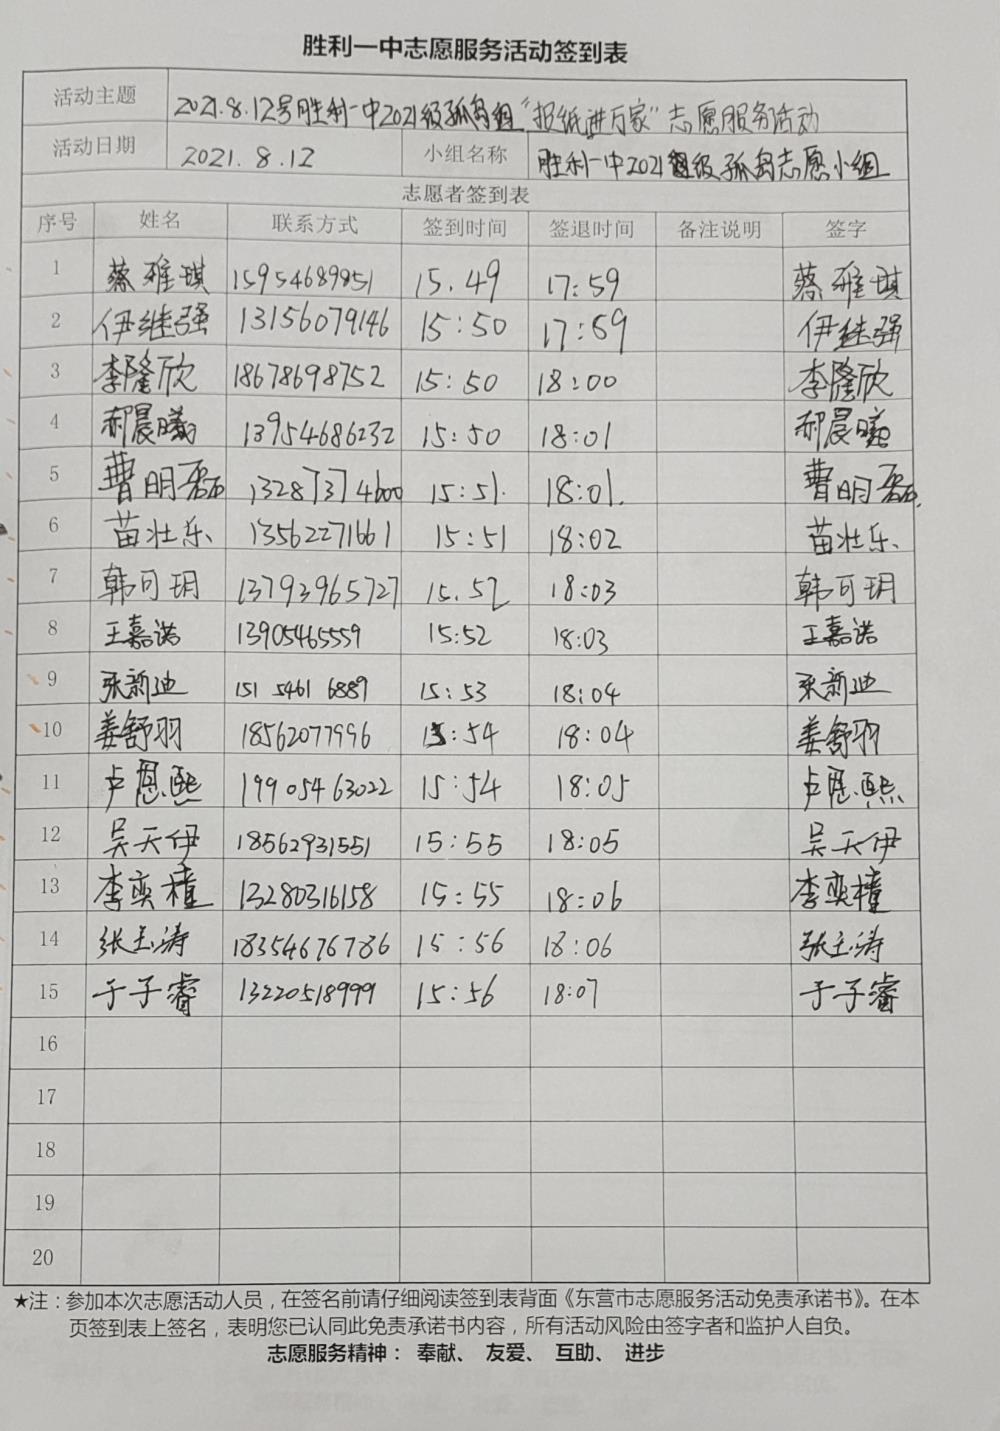 胜利一中志愿服务活动签到表
活动主题 2021.8.12号胜利一中2021级孤岛组“报纸进万家”志愿服务活动
活动日期 2021.8.12 小组名称 胜利一中2021级孤岛志愿小组
志愿者签到表
序号 姓名 联系方式 签到时间 签退时间 备注说明 签字
1 蔡雅琪 15954689851 15.49 17:59 蔡雅琪
2 伊继强 13156079146 15:50 17:59 伊继强
3 李隆欣 18678698752 15:50 18:00 李隆欣
4 郝晨曦 13954686232 15:50 18:01 郝晨曦
5 曹明磊 13287374600 15:51. 18:01. 曹明磊
6 苗壮乐 13562271661 15:51 18:02 苗壮乐
7 韩可玥 13793965727 15.52 18:03 韩可玥
8 王嘉诺 13905465559 15:52 18:03 王嘉诺
9 张新迪 151 5461 6889 15:53 18:04 张新迪
10 姜舒羽 18562077996 15:54 18:04 姜舒羽
11 卢恩熙 19905463022 15:54 18:05 卢恩熙
12 吴天伊 18562931551 15:55 18:05 吴天伊
13 李奕橦 13280316158 15:55 18:06 李奕橦
14 张玉涛 18354676786 15:56 18:06 张玉涛
15 于子睿 13220518999 15:56 18:07 于子睿
16
17
18
19
20
★注：参加本次志愿活动人员，在签名前请仔细阅读签到表背面《东营市志愿服务活动免责承诺书》。在本
页签到表上签名，表明您已认同此免责承诺书内容，所有活动风险由签字者和监护人自负。
志愿服务精神： 奉献、 友爱、 互助、 进步